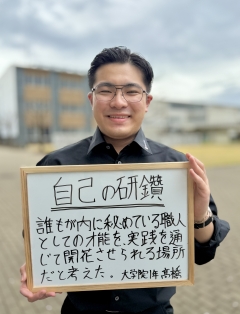 自己の研鑽
誰もが内に秘めている職人
としての才能を、実践を通
じて開花させられる場所
だと考えた。 大学院1年 高橋